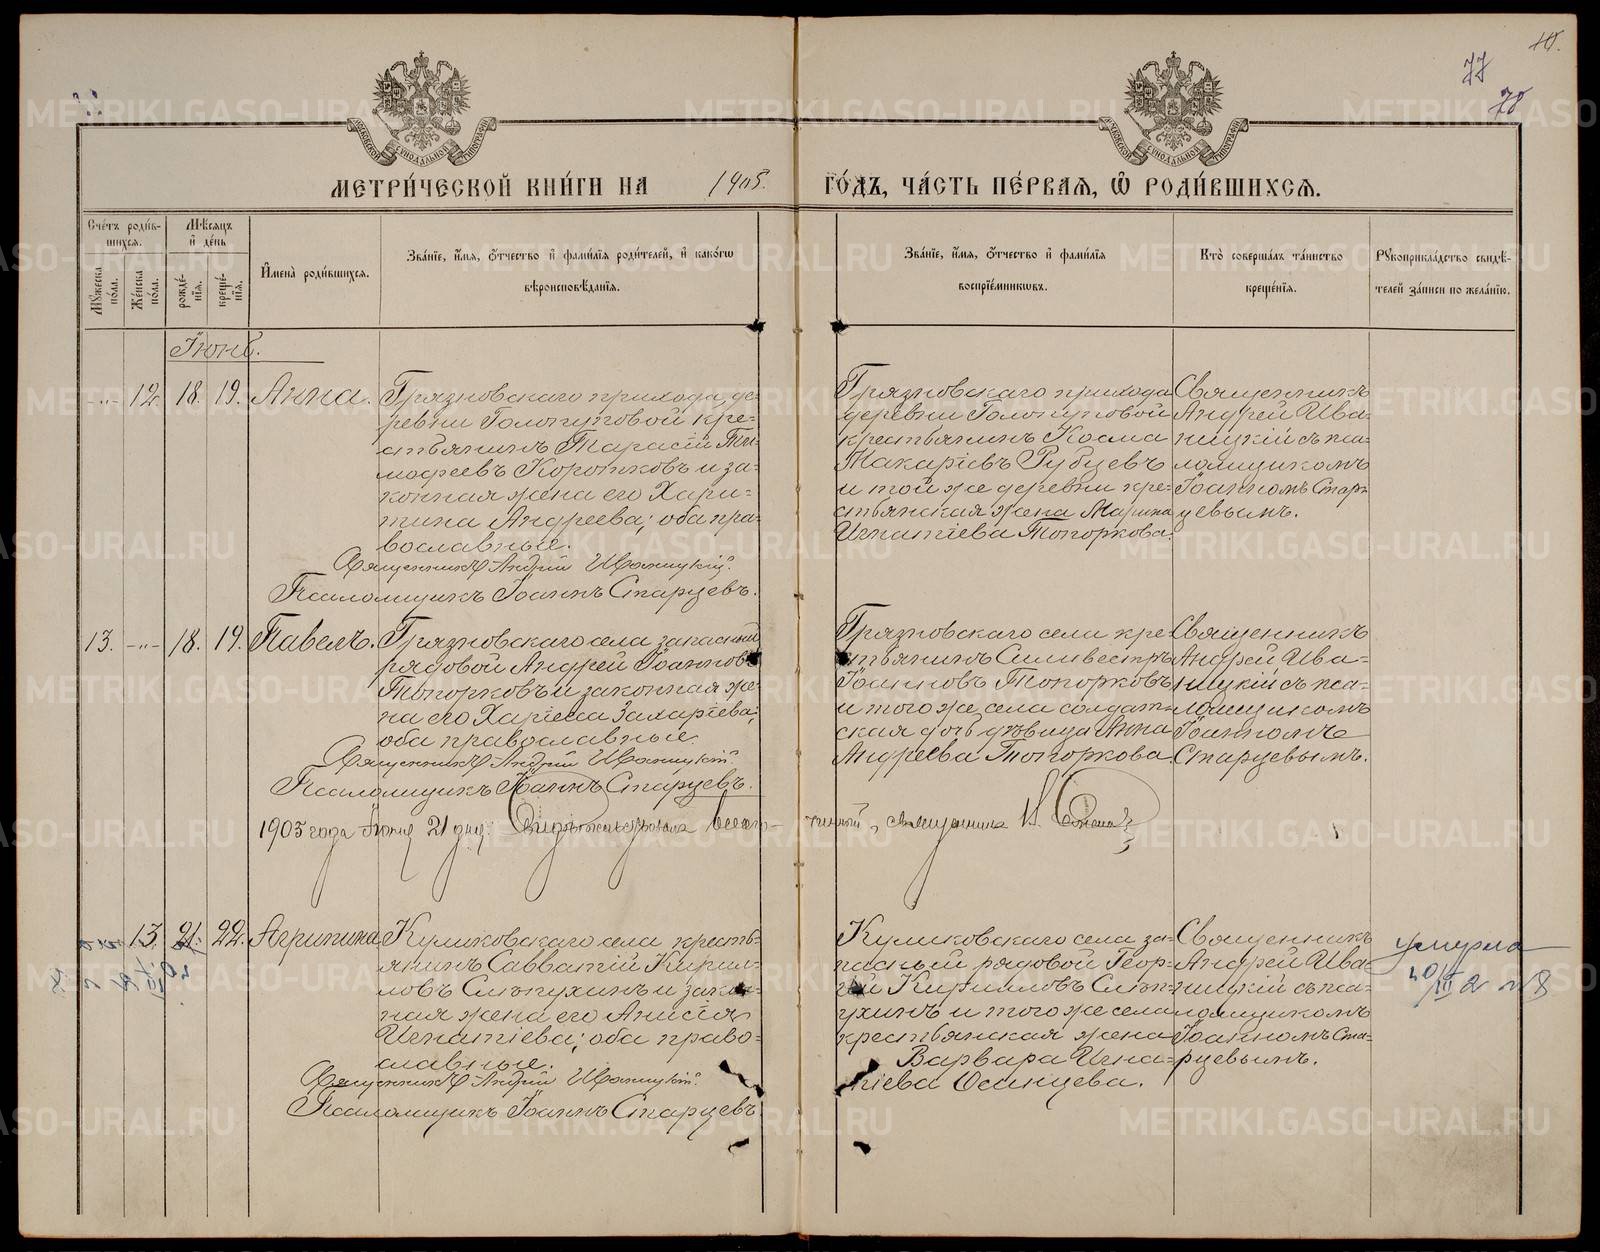 10.
77
78
МОСКОВСКОЙ СѴНОДАЛЬНОЙ ТИПОГРАФІИ
МОСКОВСКОЙ СѴНОДАЛЬНОЙ ТИПОГРАФІИ
МЕТРИ́ЧЕСКОЙ КНИ́ГИ НА 1905. ГО́ДЪ, ЧА́СТЬ ПЕ́РВАѦ, Ѡ҆ РОДИ́ВШИХСѦ.
Сче́тъ роди́в-
шихсѧ.
Мꙋжеска по́ла.
Же́нска по́ла.
Мѣ́сѧцъ
и҆ де́нь
рожде́-
нїѧ.
креще́-
нїѧ.
И҆мена̀ роди́вшихсѧ.
Зва́нїе, и҆́мѧ, ѻ҆́тчество и҆ фами́лїѧ роди́телей, и҆ како́гѡ
вѣроисповѣ́данїѧ.
Зва́нїе, и҆́мѧ, ѻ҆́тчество и҆ фами́лїѧ
воспрїе́мникѡвъ.
Кто̀ соверша́лъ та́инство
креще́нїѧ.
Рꙋкоприкла́дство свидѣ́-
телей за́писи по жела́нїю.
Іюнь.
-"- 12. 18. 19. Анна.
Грязновскаго прихода де-
ревни Голопуповой кре-
стьянинъ Тарасій Ти-
мофеевъ Коротковъ и за-
конная жена его Хари-
тина Андреева; оба пра-
вославные.
Священникъ Андрей Иваницкій.
Псаломщикъ Іоаннъ Старцевъ.
Грязновскаго прихода
деревни Голопуповой
крестьянинъ Косма
Макаріевъ Рубцевъ
и той же деревни кре-
стьянская жена Марина
Игнатіева Топоркова.
Священникъ
Андрей Ива-
ницкій съ пса-
ломщикомъ
Іоанномъ Стар-
цевымъ.
13. -"- 18. 19. Павелъ.
Грязновскаго села запасный
рядовой Андрей Іоанновъ
Топорковъ и законная же-
на его Хариеса Захаріева;
оба православные.
Священникъ Андрей Иваницкій.
Псаломщикъ Іоаннъ Старцевъ.
Грязновскаго села кре-
стьянинъ Силивестръ
Іоанновъ Топорковъ
и того же села солдат-
ская дочь девица Анна
Андреева Топоркова.
Священникъ
Андрей Ива-
ницкій съ пса-
ломщикомъ
Іоанномъ
Старцевымъ.
1905 года Іюня 21 дня. Свидѣтельствовалъ Благо-
чинный, священникъ
13. 21. 22. Агрипина
Куликовскаго села кресть-
янинъ Савватій Кирил-
ловъ Слѣпухинъ и закон-
ная жена его Анисія
Игнатіева; оба право-
славные.
Священникъ Андрей Иваницкій.
Псаломщикъ Іоаннъ Старцевъ.
Куликовскаго села за-
пасный рядовой Геор-
гій Кирилловъ Слѣп-
ухинъ и того же села
крестьянская жена
Варвара Игна-
тіева Осинцева.
Священникъ
Андрей Ива-
ницкій съ пса-
ломщикомъ
Іоанномъ Ста-
рцевымъ.
умерла
METRIKI.GASO-URAL.RU